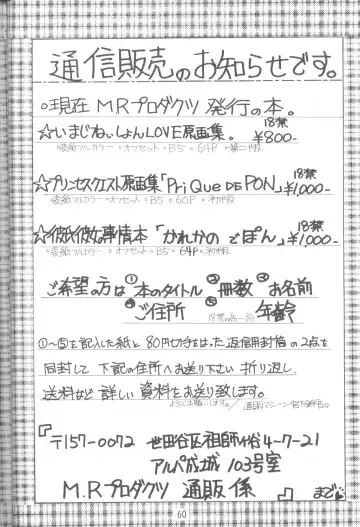 通信販売のお知らせです。
○現在 M.Rプロダクツ 発行の本。
☆いまじねぃしょんLOVE原画集。 18禁 ¥800-
・表紙フルカラー ・オフセット ・B5 ・64P ・第二版
☆プリンセスクエスト原画集「Pri Que DE PON」 18禁 ¥1,000-
・表紙フルカラー ・オフセット ・B5 ・60P ・初版
☆彼氏彼女の事情本「かれかの でぽん」 18禁 ¥1,000-
・表紙フルカラー ・オフセット ・B5 ・64P ・初版
ご希望の方は ①本のタイトル ②冊数 ③お名前
④ご住所 ⑤年齢
18禁の為
①〜⑤を記入した紙と 80円切手をはった返信用封筒の2点を
同封して 下記の住所へお送り下さい。折り返し、
送料など詳しい資料をお送り致します。
よろしくお願いします。
『〒157-0072 世田谷区祖師谷4-7-21
アルペ成城 103号室
M.Rプロダクツ 通販係 』まで
60